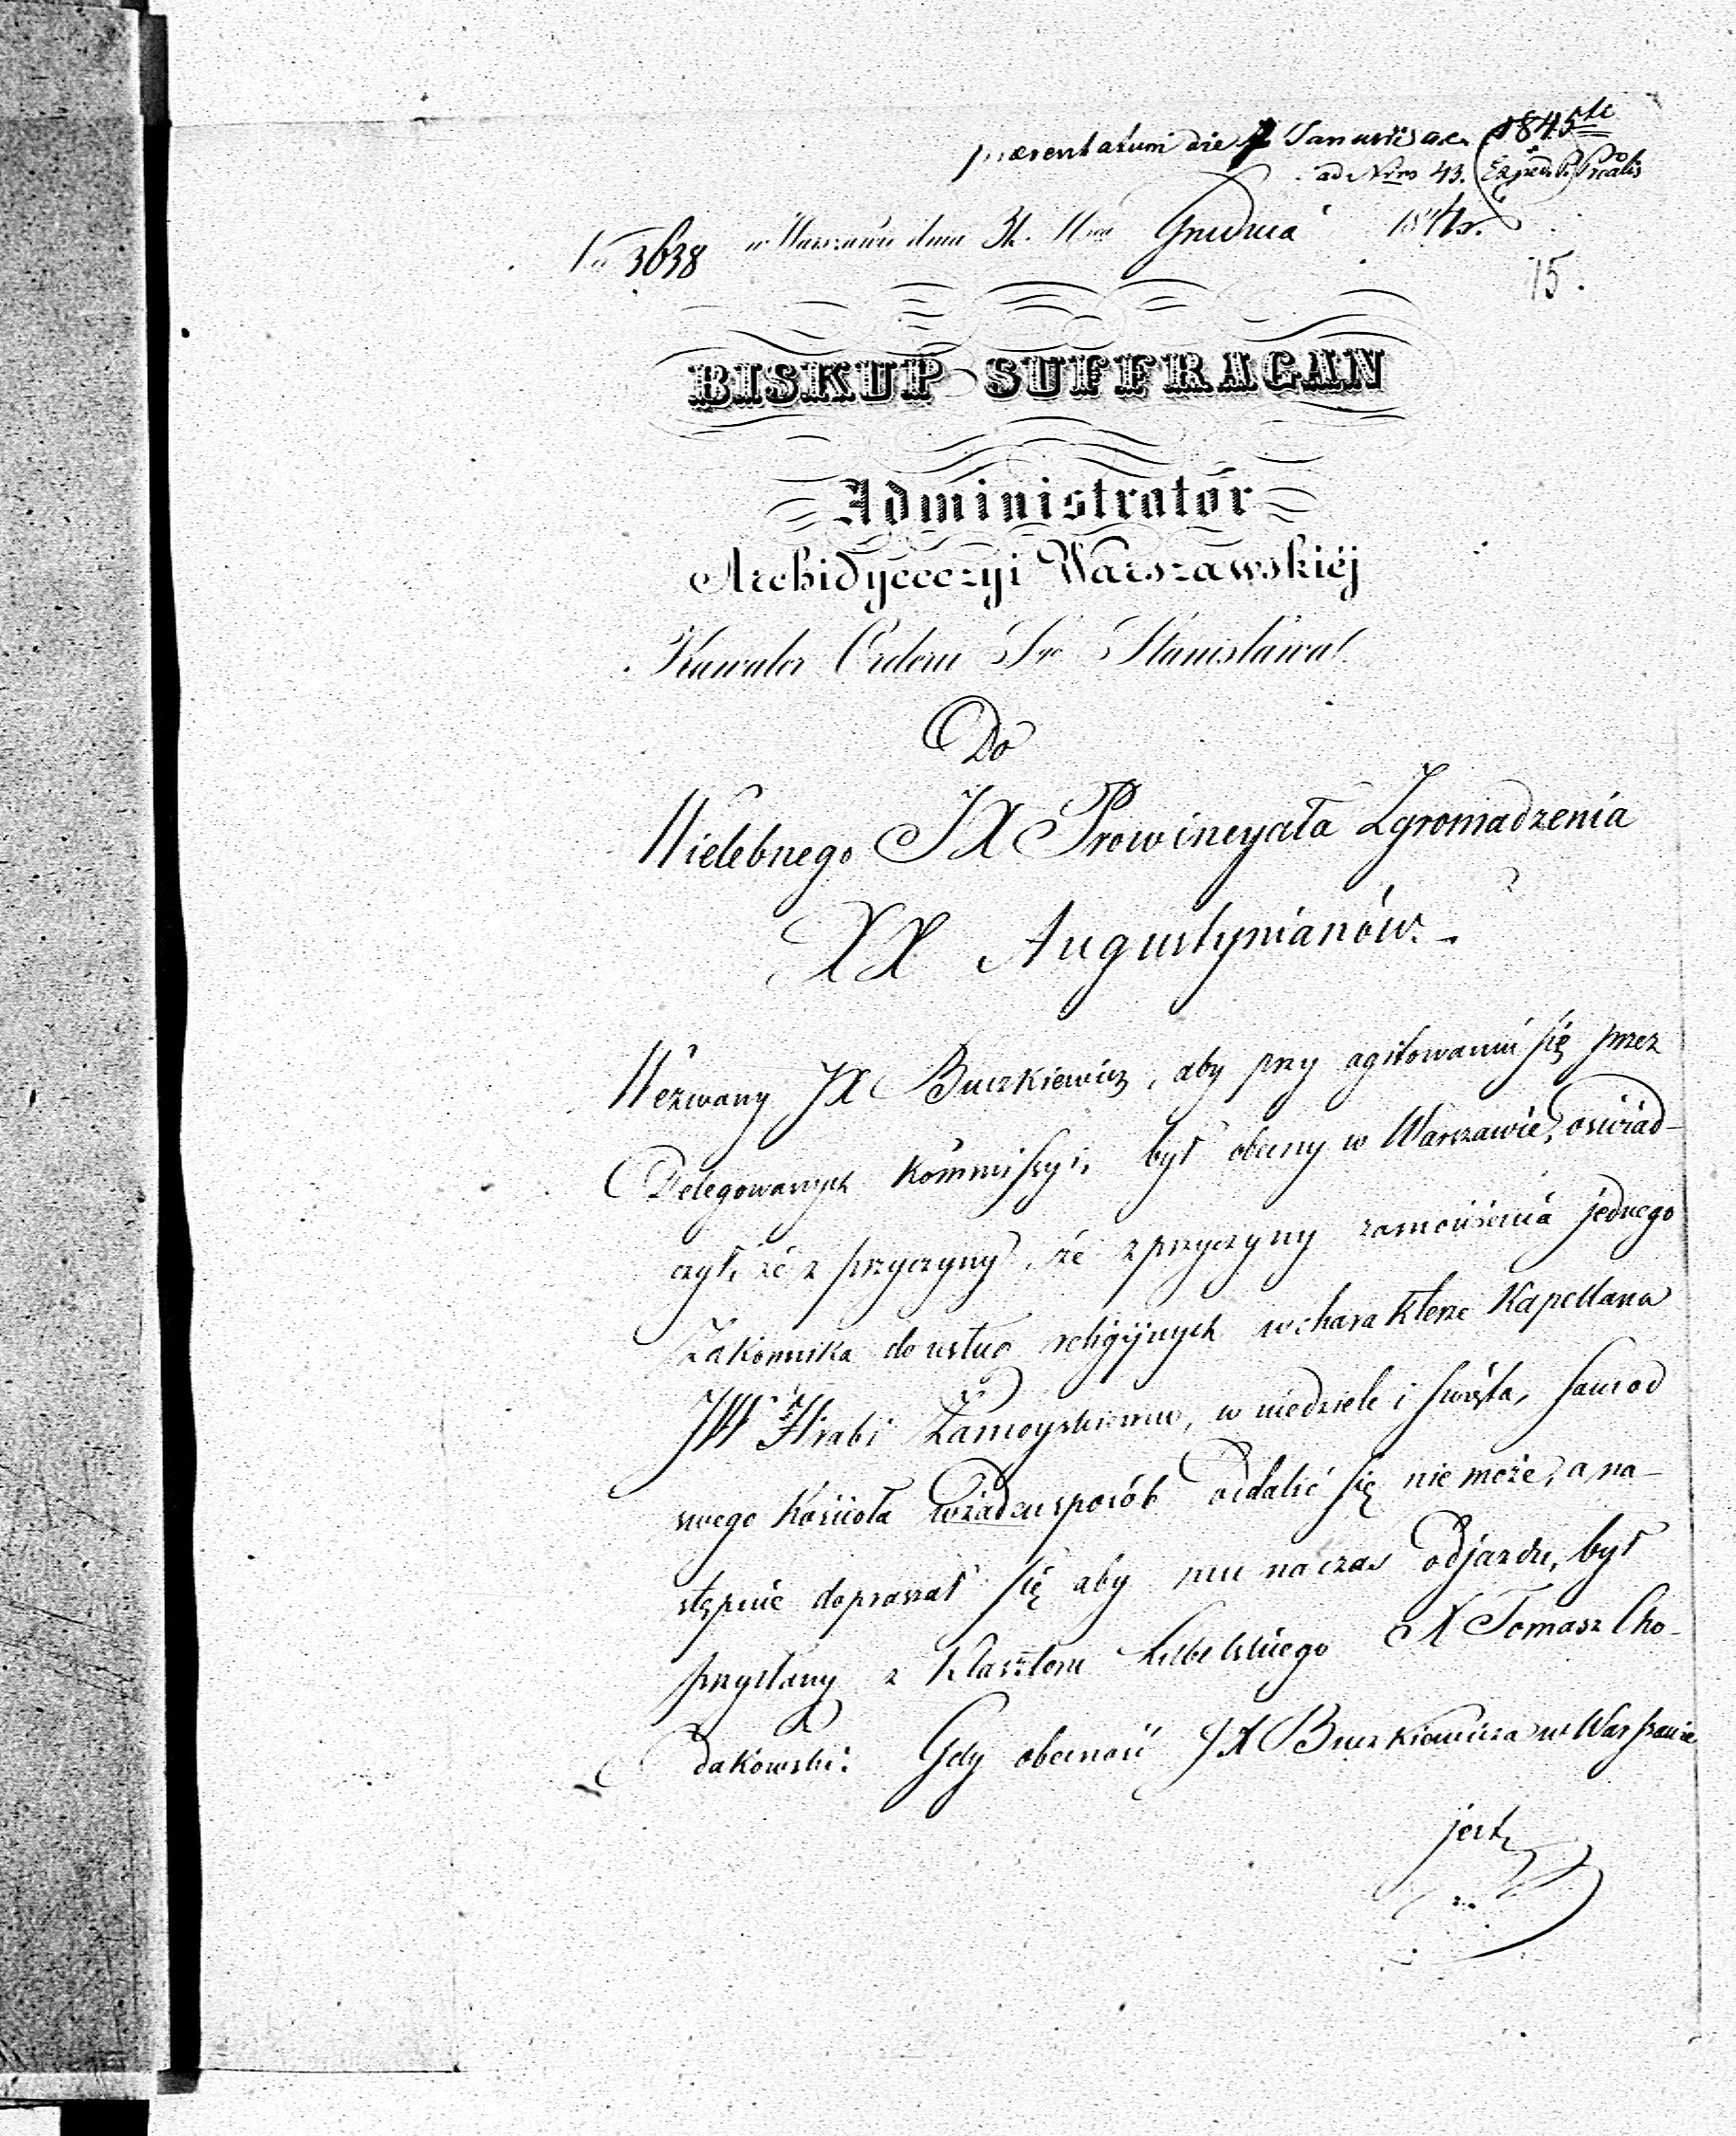 præsentatum die 7 Januarii a.c. 1845te
ad Nrm 43. Exped. Prcalis
No 3638 w Warszawie dnia 31. Mca Grudnia 1844 r.
75.
BISKUP SUFFRAGAN
Administrator
Archidyecezyi Warszawskiéj
Kawaler Orderu Sgo Stanisława
Do
Wielebnego JX Prowincyała Zgromadzenia
XX Augustynianów.
Wezwany JX Buczkiewicz, aby przy agitowaniu się przez
Delegowanych Kommissyi, był obecny w Warszawie, oświad-
czył, że z przyczyny, że z przyczyny zamówienia jednego
Zakonnika do usług religijnych w charakterze Kapellana
JW Hrabi Zamoyskiemu, w niedziele i święta, sam od
swego Kościoła w żaden sposób oddalić się nie może, a na-
stępnie dopraszał się aby mu na czas odjazdu, był
przysłany z Klasztoru Lubelskiego X Tomasz Cho-
dakowski. Gdy obecność JX Buczkiewicza w Warszawie
jest